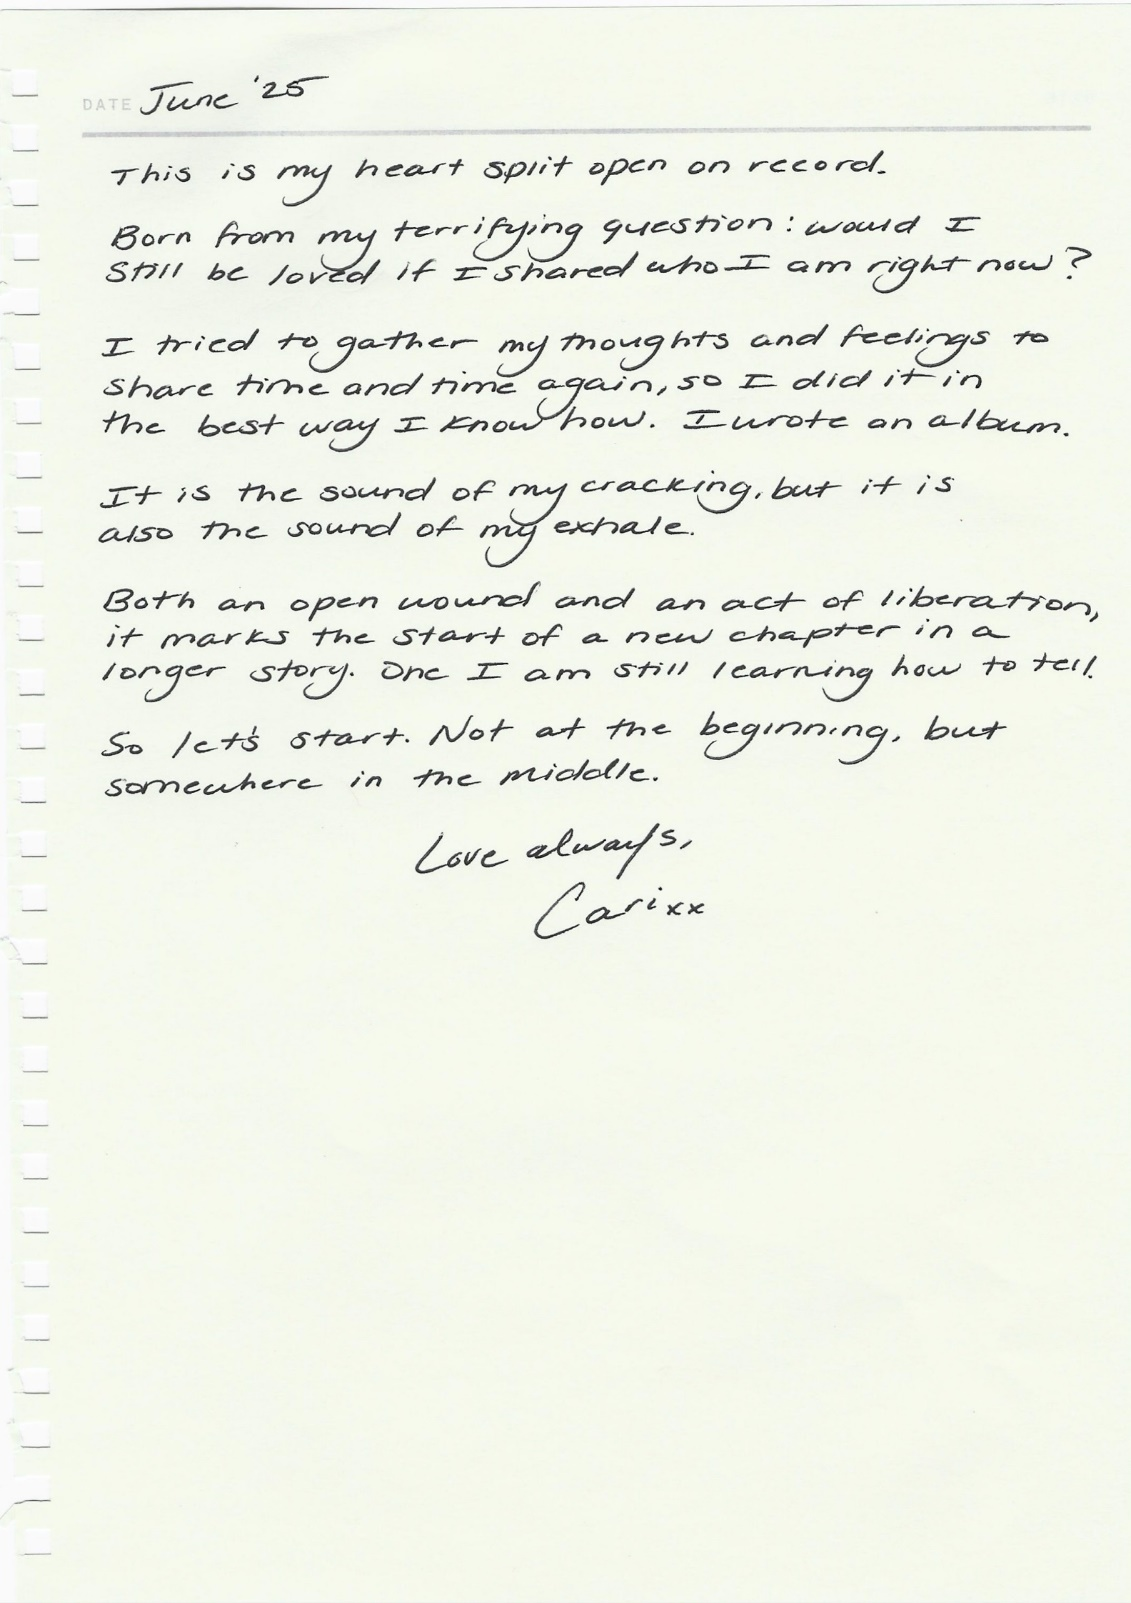 DATE June '25
This is my heart split open on record.
Born from my terrifying question: would I
still be loved if I shared who I am right now?
I tried to gather my thoughts and feelings to
share time and time again, so I did it in
the best way I know how. I wrote an album.
It is the sound of my cracking, but it is
also the sound of my exhale.
Both an open wound and an act of liberation,
it marks the start of a new chapter in a
longer story. One I am still learning how to tell.
So let's start. Not at the beginning, but
somewhere in the middle.
Love always,
Carixx